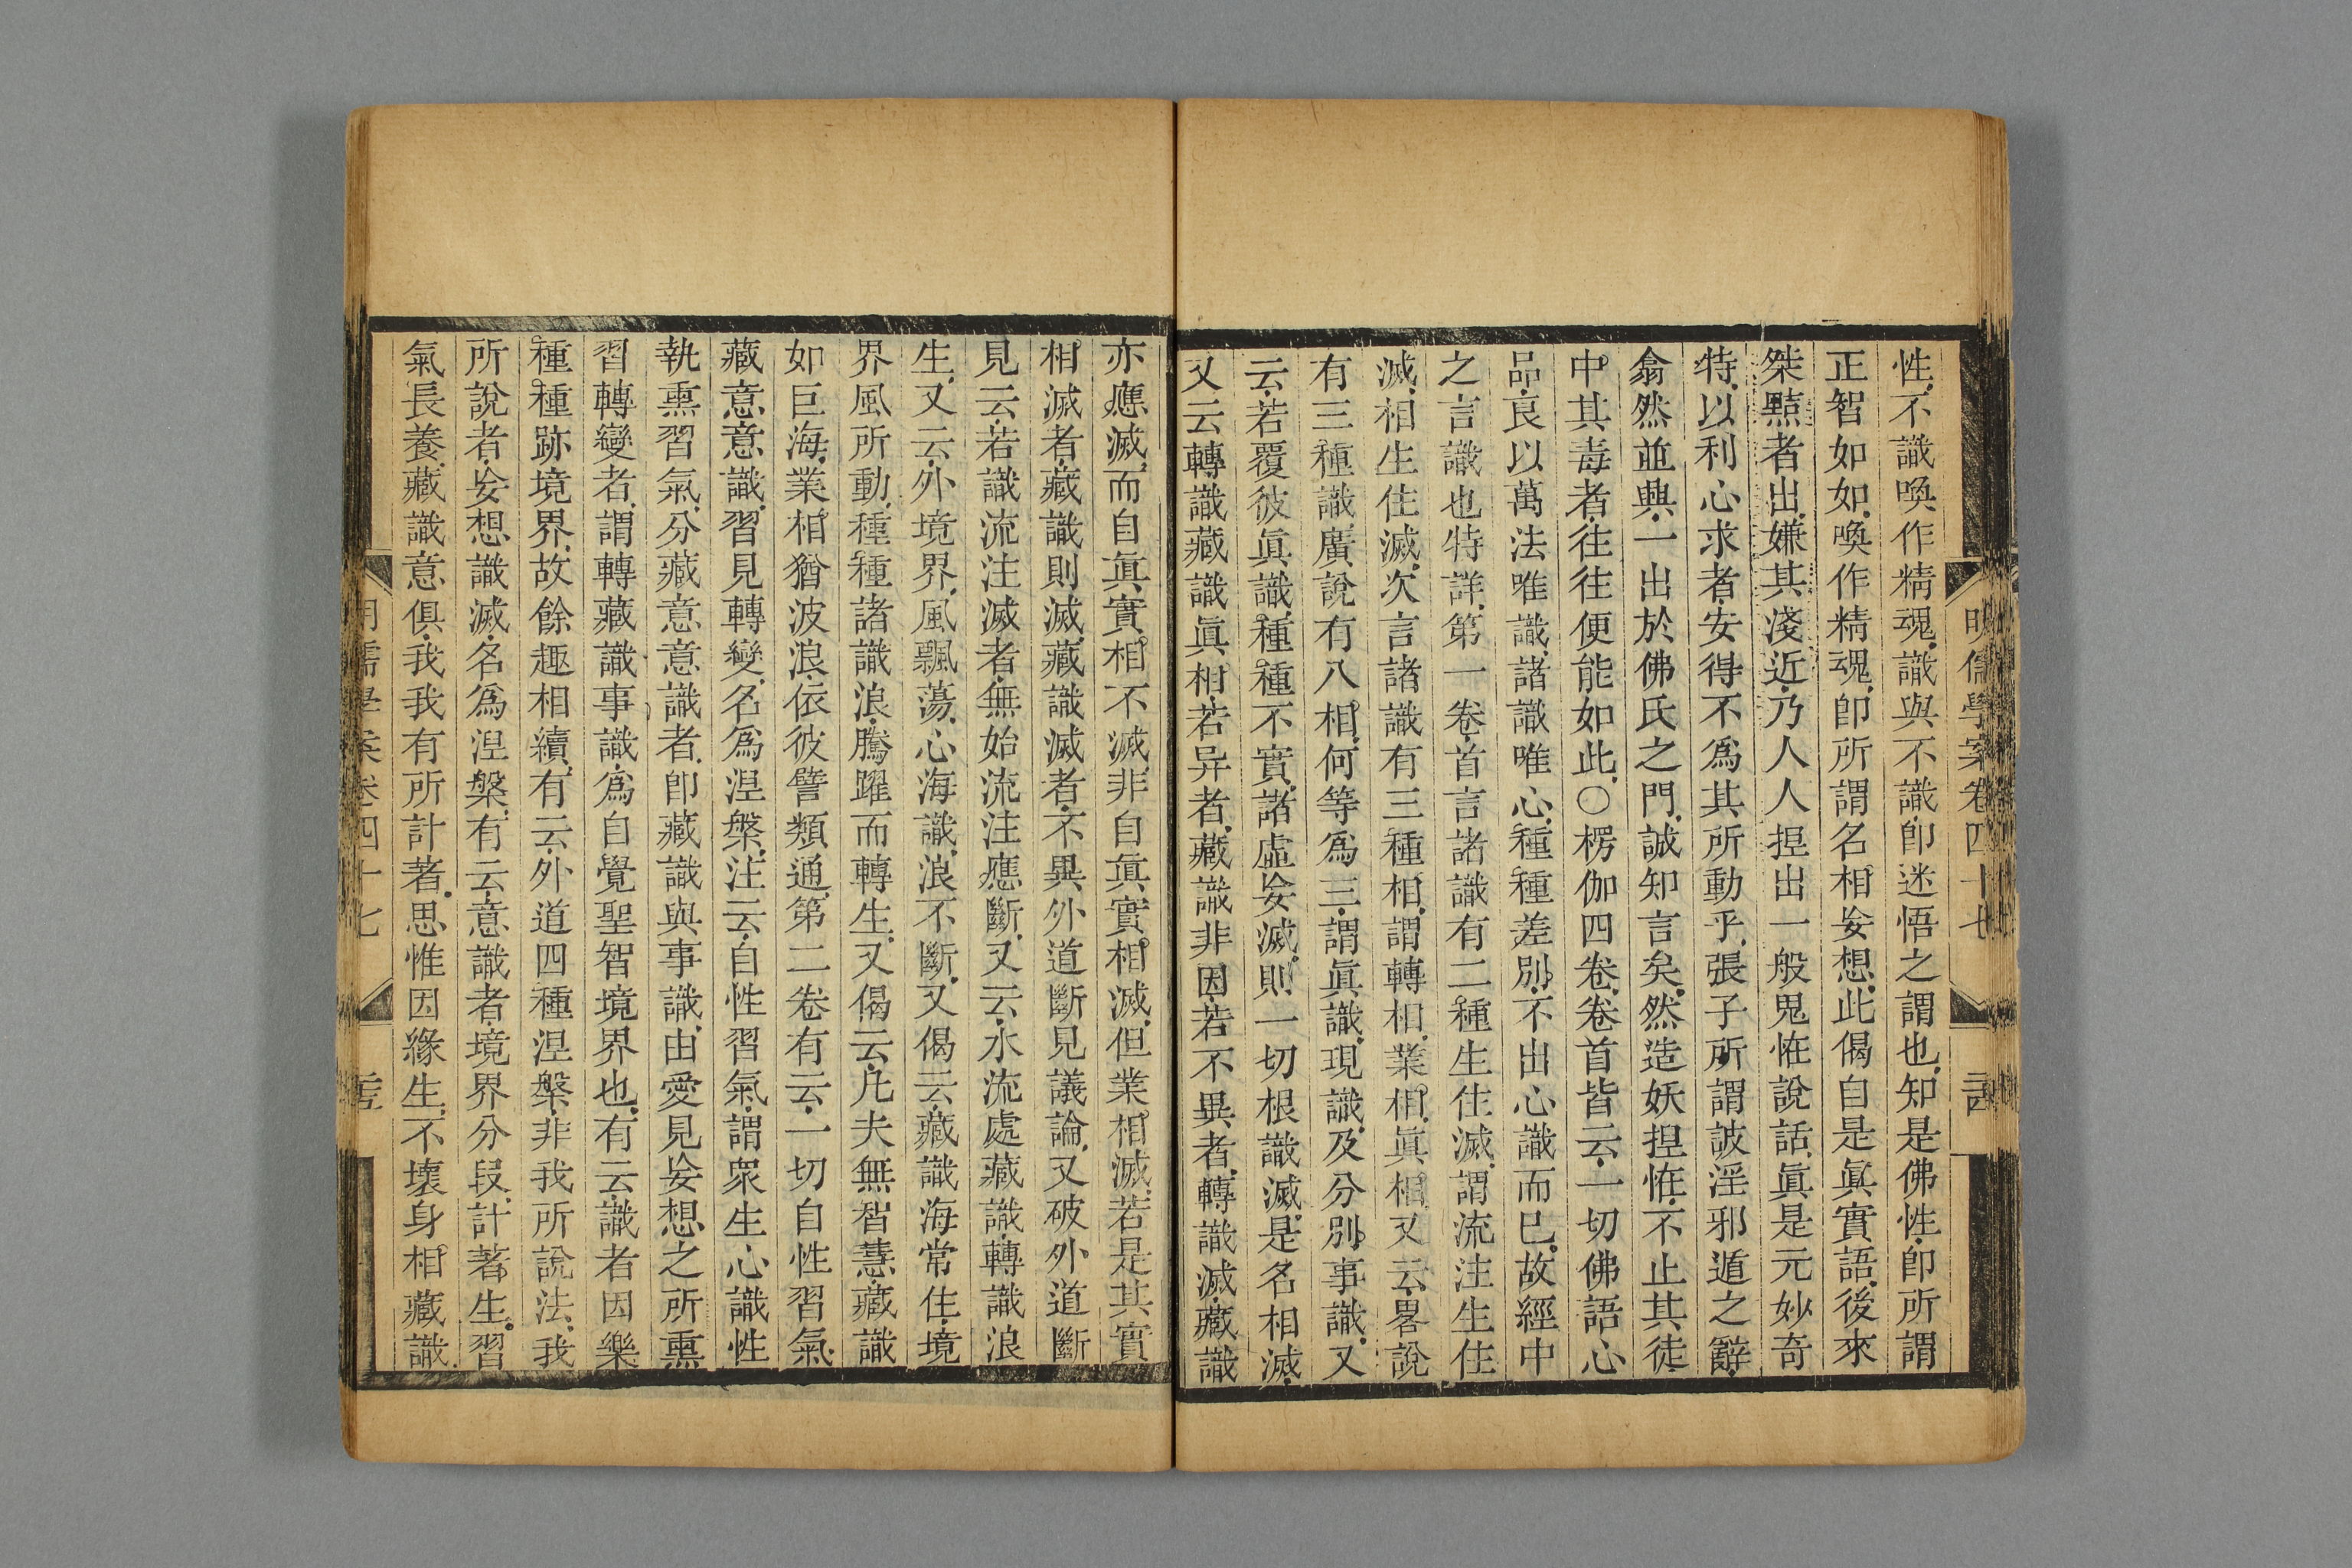 明儒學案卷四十七
性不識喚作精魂識與不識卽迷悟之謂也知是佛性卽所謂
正智如如喚作精魂卽所謂名相妄想此偈自是眞實語後來
桀黠者出嫌其淺近乃人人揑出一般鬼怪說話眞是元妙奇
特以利心求者安得不爲其所動乎張子所謂詖淫邪遁之辭
翕然並興一出於佛氏之門誠知言矣然造妖揑怪不止其徒
中其毒者往往便能如此〇楞伽四卷卷首皆云一切佛語心
品良以萬法唯識諸識唯心種種差別不出心識而已故經中
之言識也特詳第一卷首言諸識有二種生住滅謂流注生住
滅相生住滅次言諸識有三種相謂轉相業相眞相又云畧說
有三種識廣說有八相何等爲三謂眞識現識及分別事識又
云若覆彼眞識種種不實諸虛妄滅則一切根識滅是名相滅
又云轉識藏識眞相若异者藏識非因若不異者轉識滅藏識
亦應滅而自眞實相不滅非自眞實相滅但業相滅若是其實
相滅者藏識則滅藏識滅者不異外道斷見議論又破外道斷
見云若識流注滅者無始流注應斷又云水流處藏識轉識浪
生又云外境界風飄蕩心海識浪不斷又偈云藏識海常住境
界風所動種種諸識浪騰躍而轉生又偈云凡夫無智慧藏識
如巨海業相猶波浪依彼譬類通第二卷有云一切自性習氣
藏意意識習見轉變名爲涅槃注云自性習氣謂衆生心識性
執熏習氣分藏意意識者卽藏識與事識由愛見妄想之所熏
習轉變者謂轉藏識事識爲自覺聖智境界也有云識者因樂
種種跡境界故餘趣相續有云外道四種涅槃非我所說法我
所說者妄想識滅名爲涅槃有云意識者境界分段計著生習
氣長養藏識意俱我我有所計著思惟因緣生不壞身相藏識